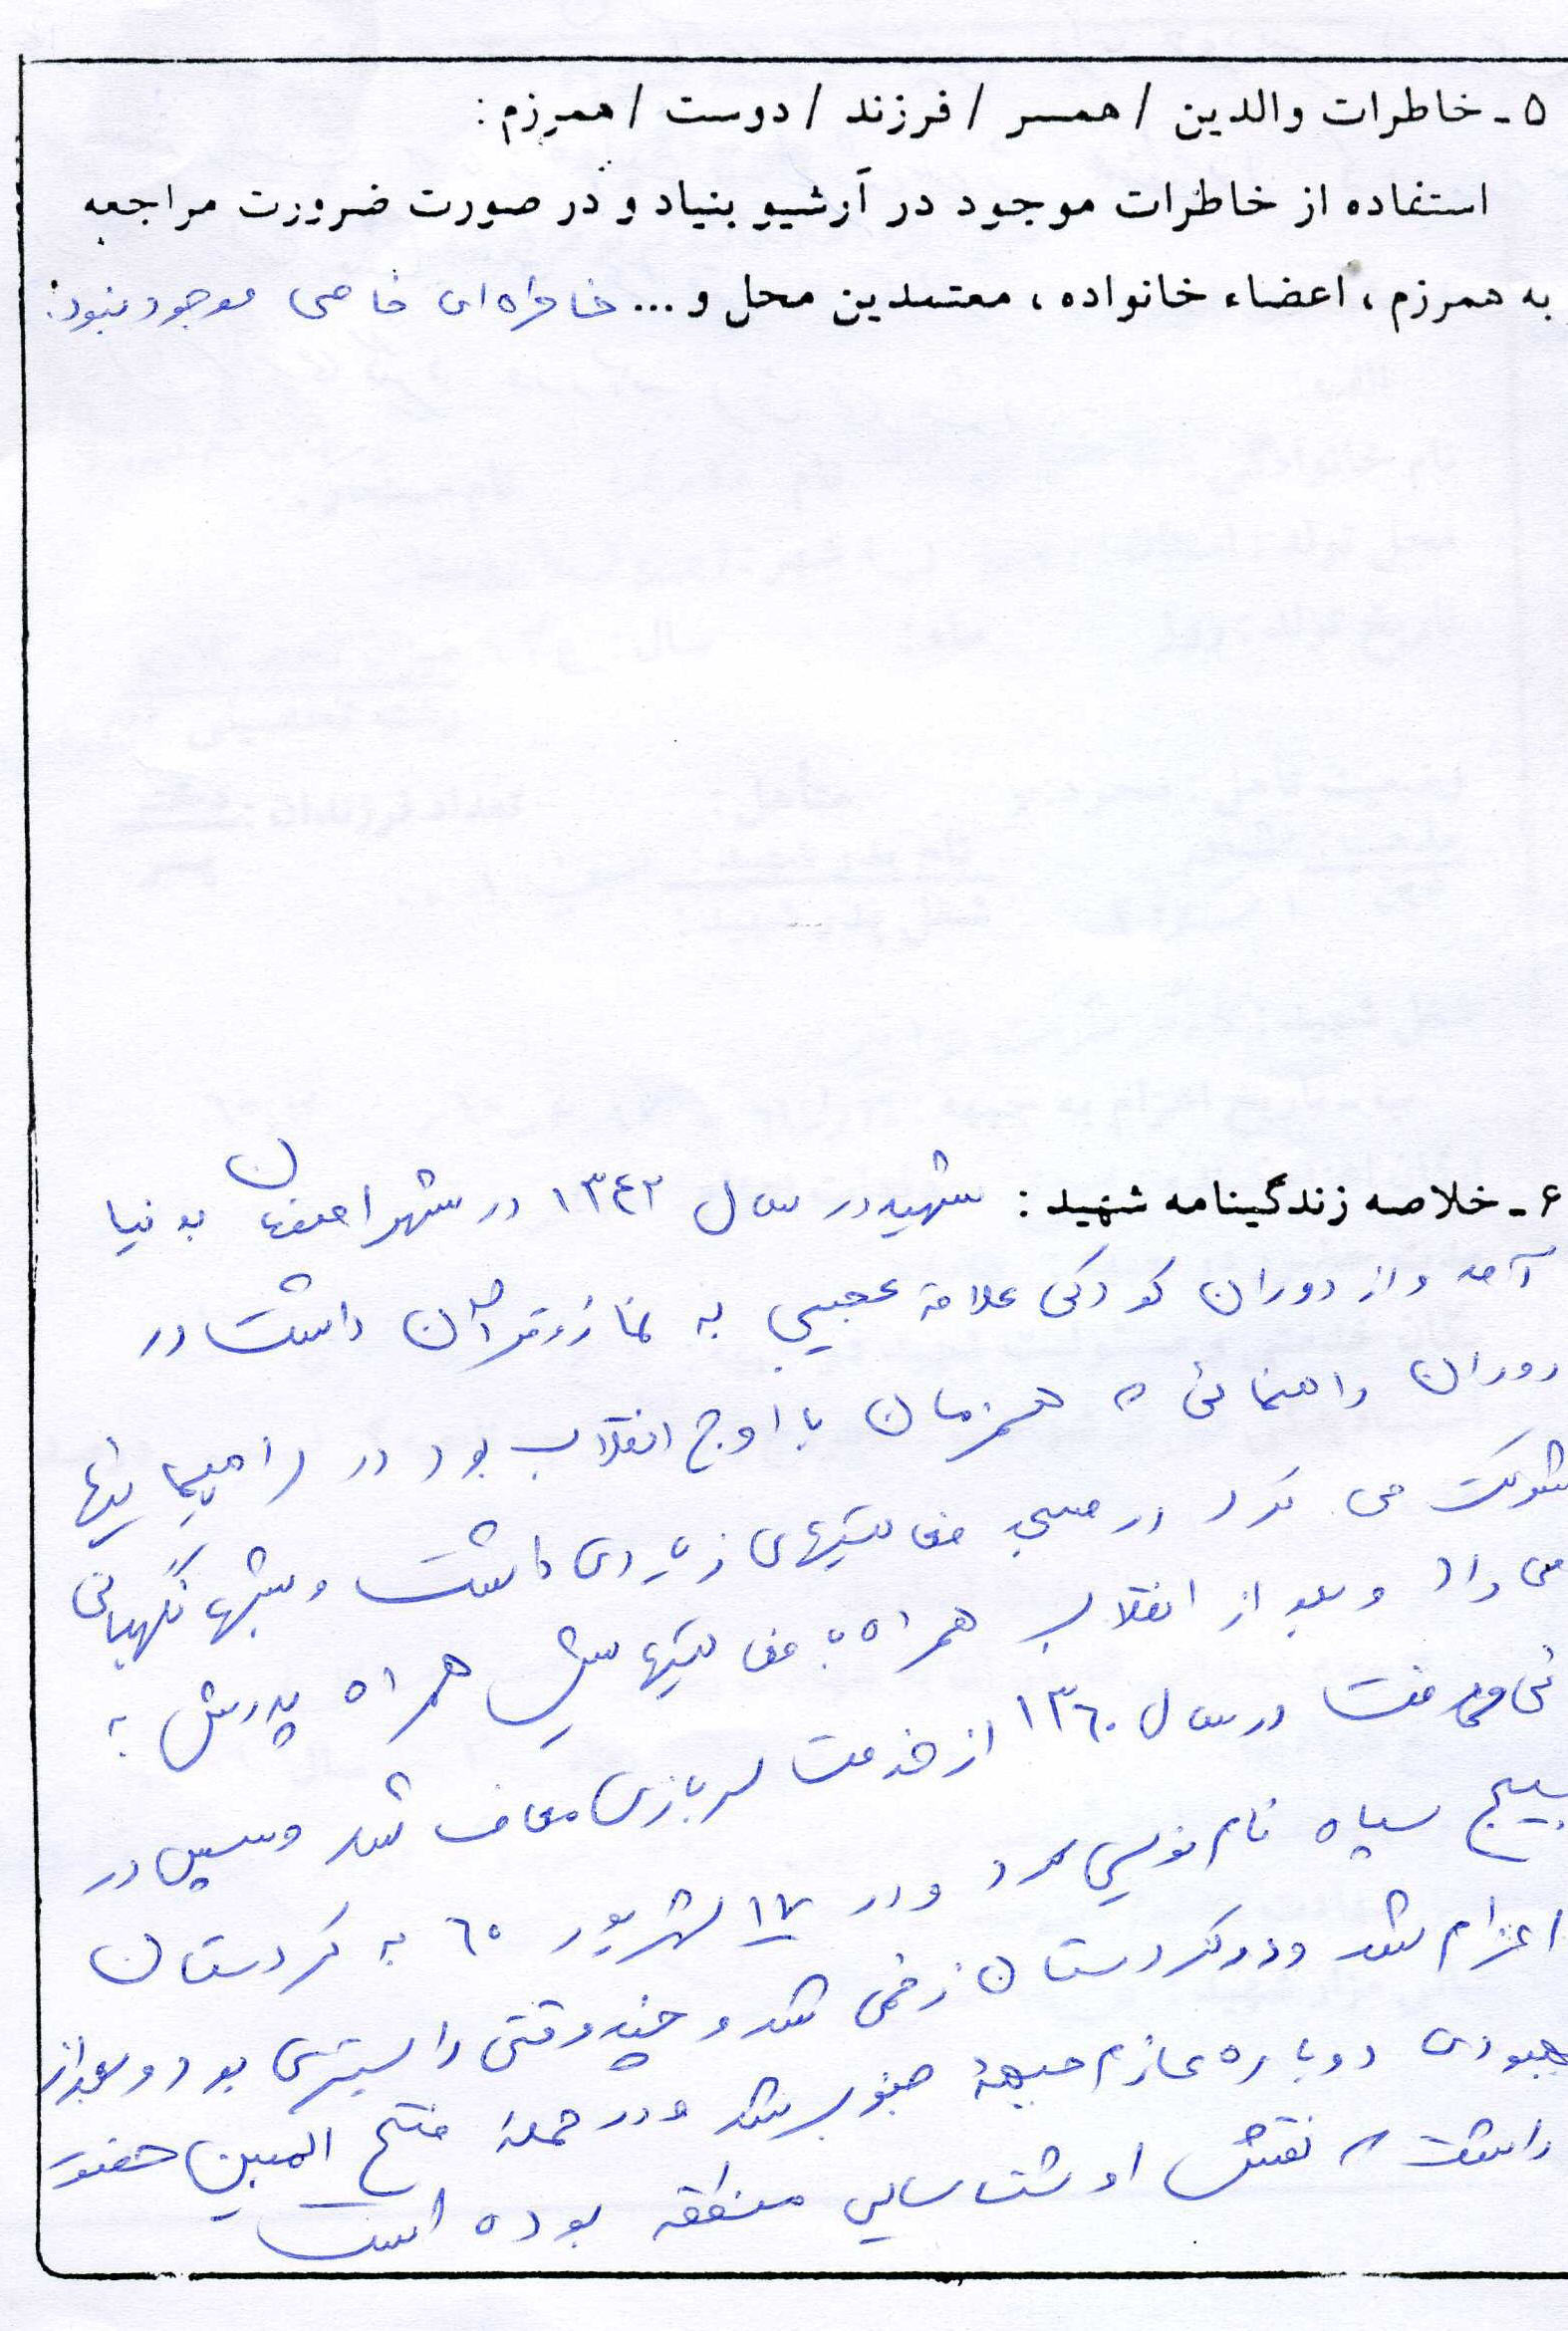 ۵ـ خاطرات والدین / همسر / فرزند / دوست / همرزم :
استفاده از خاطرات موجود در آرشیو بنیاد و در صورت ضرورت مراجعه
به همرزم ، اعضاء خانواده ، معتمدین محل و ... خاطره‌ای خاصی موجود نبود.
۶ـ خلاصه زندگینامه شهید : شهید در سال ۱۳۴۲ در شهر اصفهان بدنیا
آمد و از دوران کودکی علاقه عجیبی به نماز و قرآن داشت در
دوران راهنمائی که همزمان با اوج انقلاب بود در راهپیمایی‌ها
شرکت می کرد در مسجد فعالیتهای زیادی داشت و شبها نگهبانی
می داد و بعد از انقلاب همراه با فعالیتهایش همراه پدرش به
در سال ۱۳۶۰ از خدمت سربازی معاف شد و سپس در
بسیج سپاه نام نویسی کرد و در ۱۷ شهریور ۶۰ به کردستان
اعزام شد و در کردستان زخمی شد و چند وقتی را بستری بود و بعد از
بهبودی دوباره عازم جبهه جنوب شد و در حمله فتح المبین حضور
داشت که نقش او شناسایی منطقه بوده است